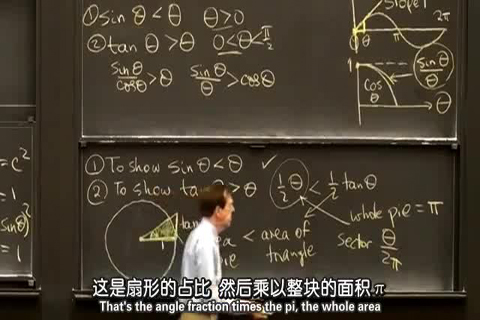 ① sin θ < θ   θ > 0
② tan θ > θ   0 < θ < π/2
sin θ/cos θ > θ   sin θ/θ > cos θ
slope 1
2π
θ
π
1
cos θ
sin θ/θ
θ
= c²
= 1
sin θ)
= 1
① To show sin θ < θ ✓
② To show θ
1/2 θ < 1/2 tan θ
< area of triangle
whole pie = π
sector θ/2π
这是扇形的占比 然后乘以整块的面积 π
That's the angle fraction times the pi, the whole area